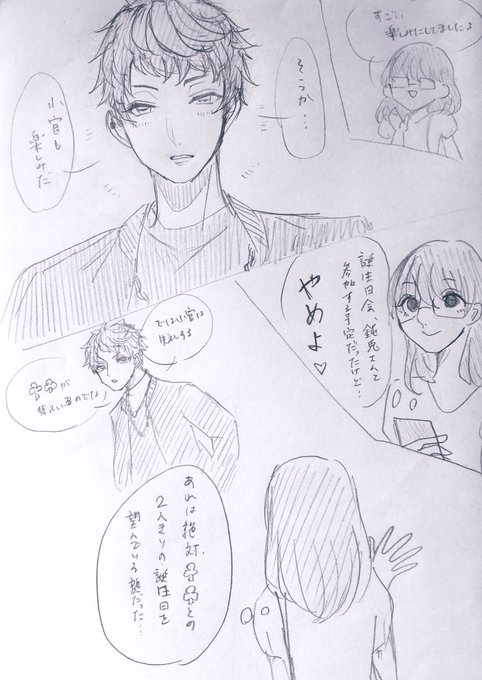 すごい
楽しみにしてましたよ
そうか…
小官も
楽しみだ
誕生日会、銃兎さんと
参加する予定だったけど…
やめよ♡
では小官は
失礼する
が
あれは絶対、との
2人きりの誕生日を
望んでいる顔だった…